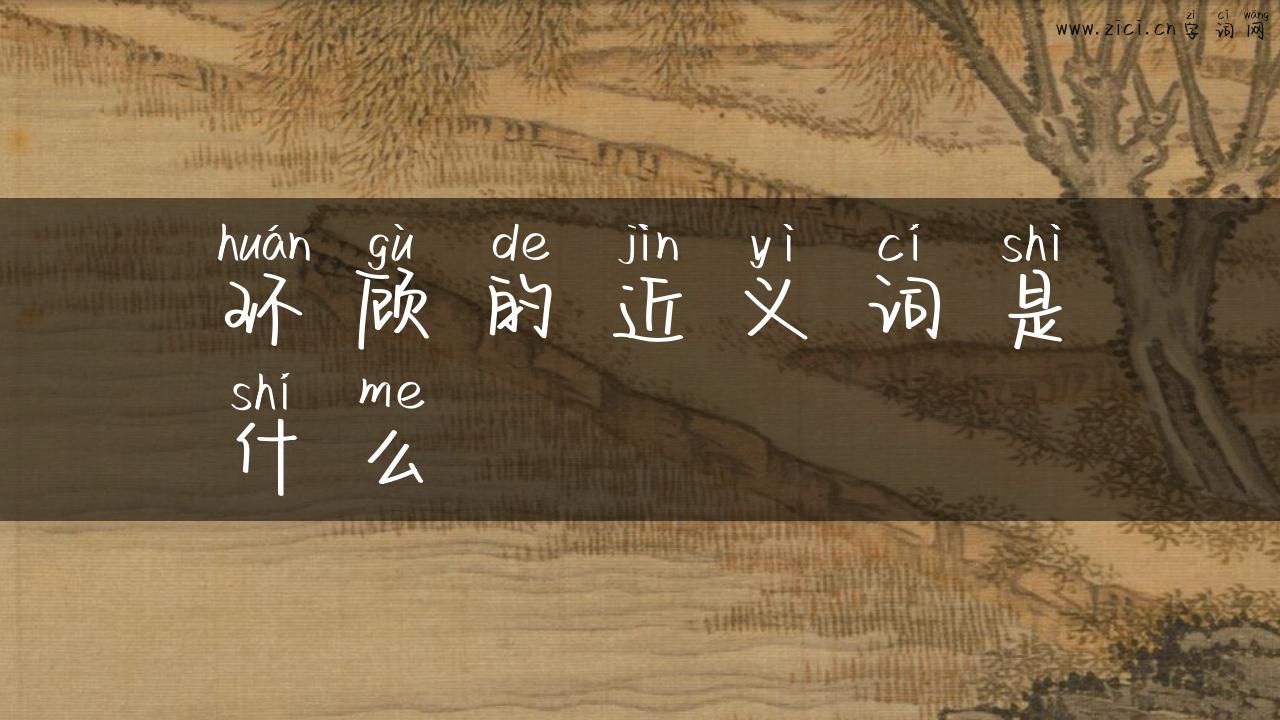 zì cí wǎng
www.zici.cn字词网
huán gù de jìn yì cí shì
环顾的近义词是
shí me
什么